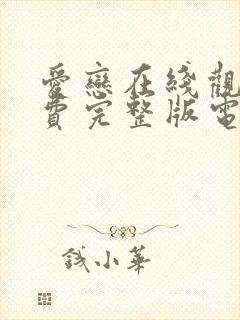 愛戀在綫觀
費完整版電
錢小華